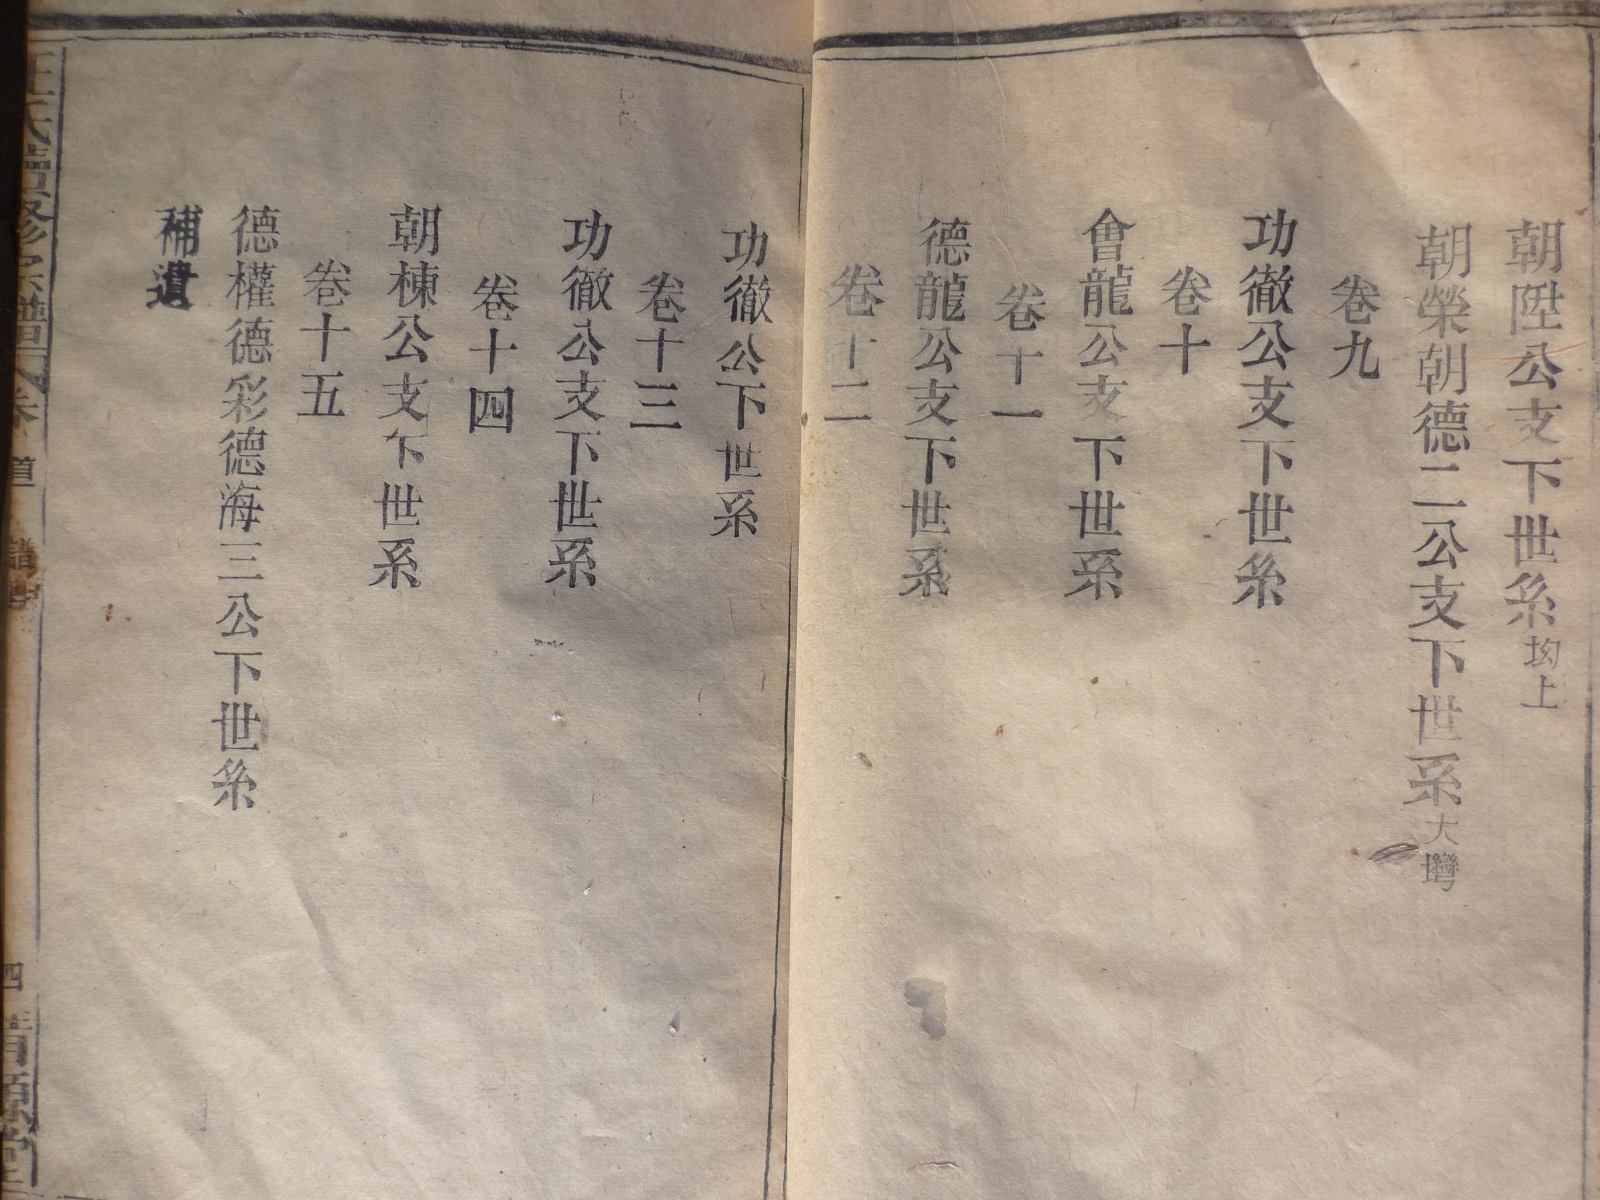 朝陞公支下世系坳上
朝榮朝德二公支下世系大灣
卷九
功徹公支下世系
卷十
會龍公支下世系
卷十一
德龍公支下世系
卷十二
功徹公下世系
卷十三
功徹公支下世系
卷十四
朝棟公支下世系
卷十五
德權德彩德海三公下世系
補遺
氏續修宗譜 卷首 四